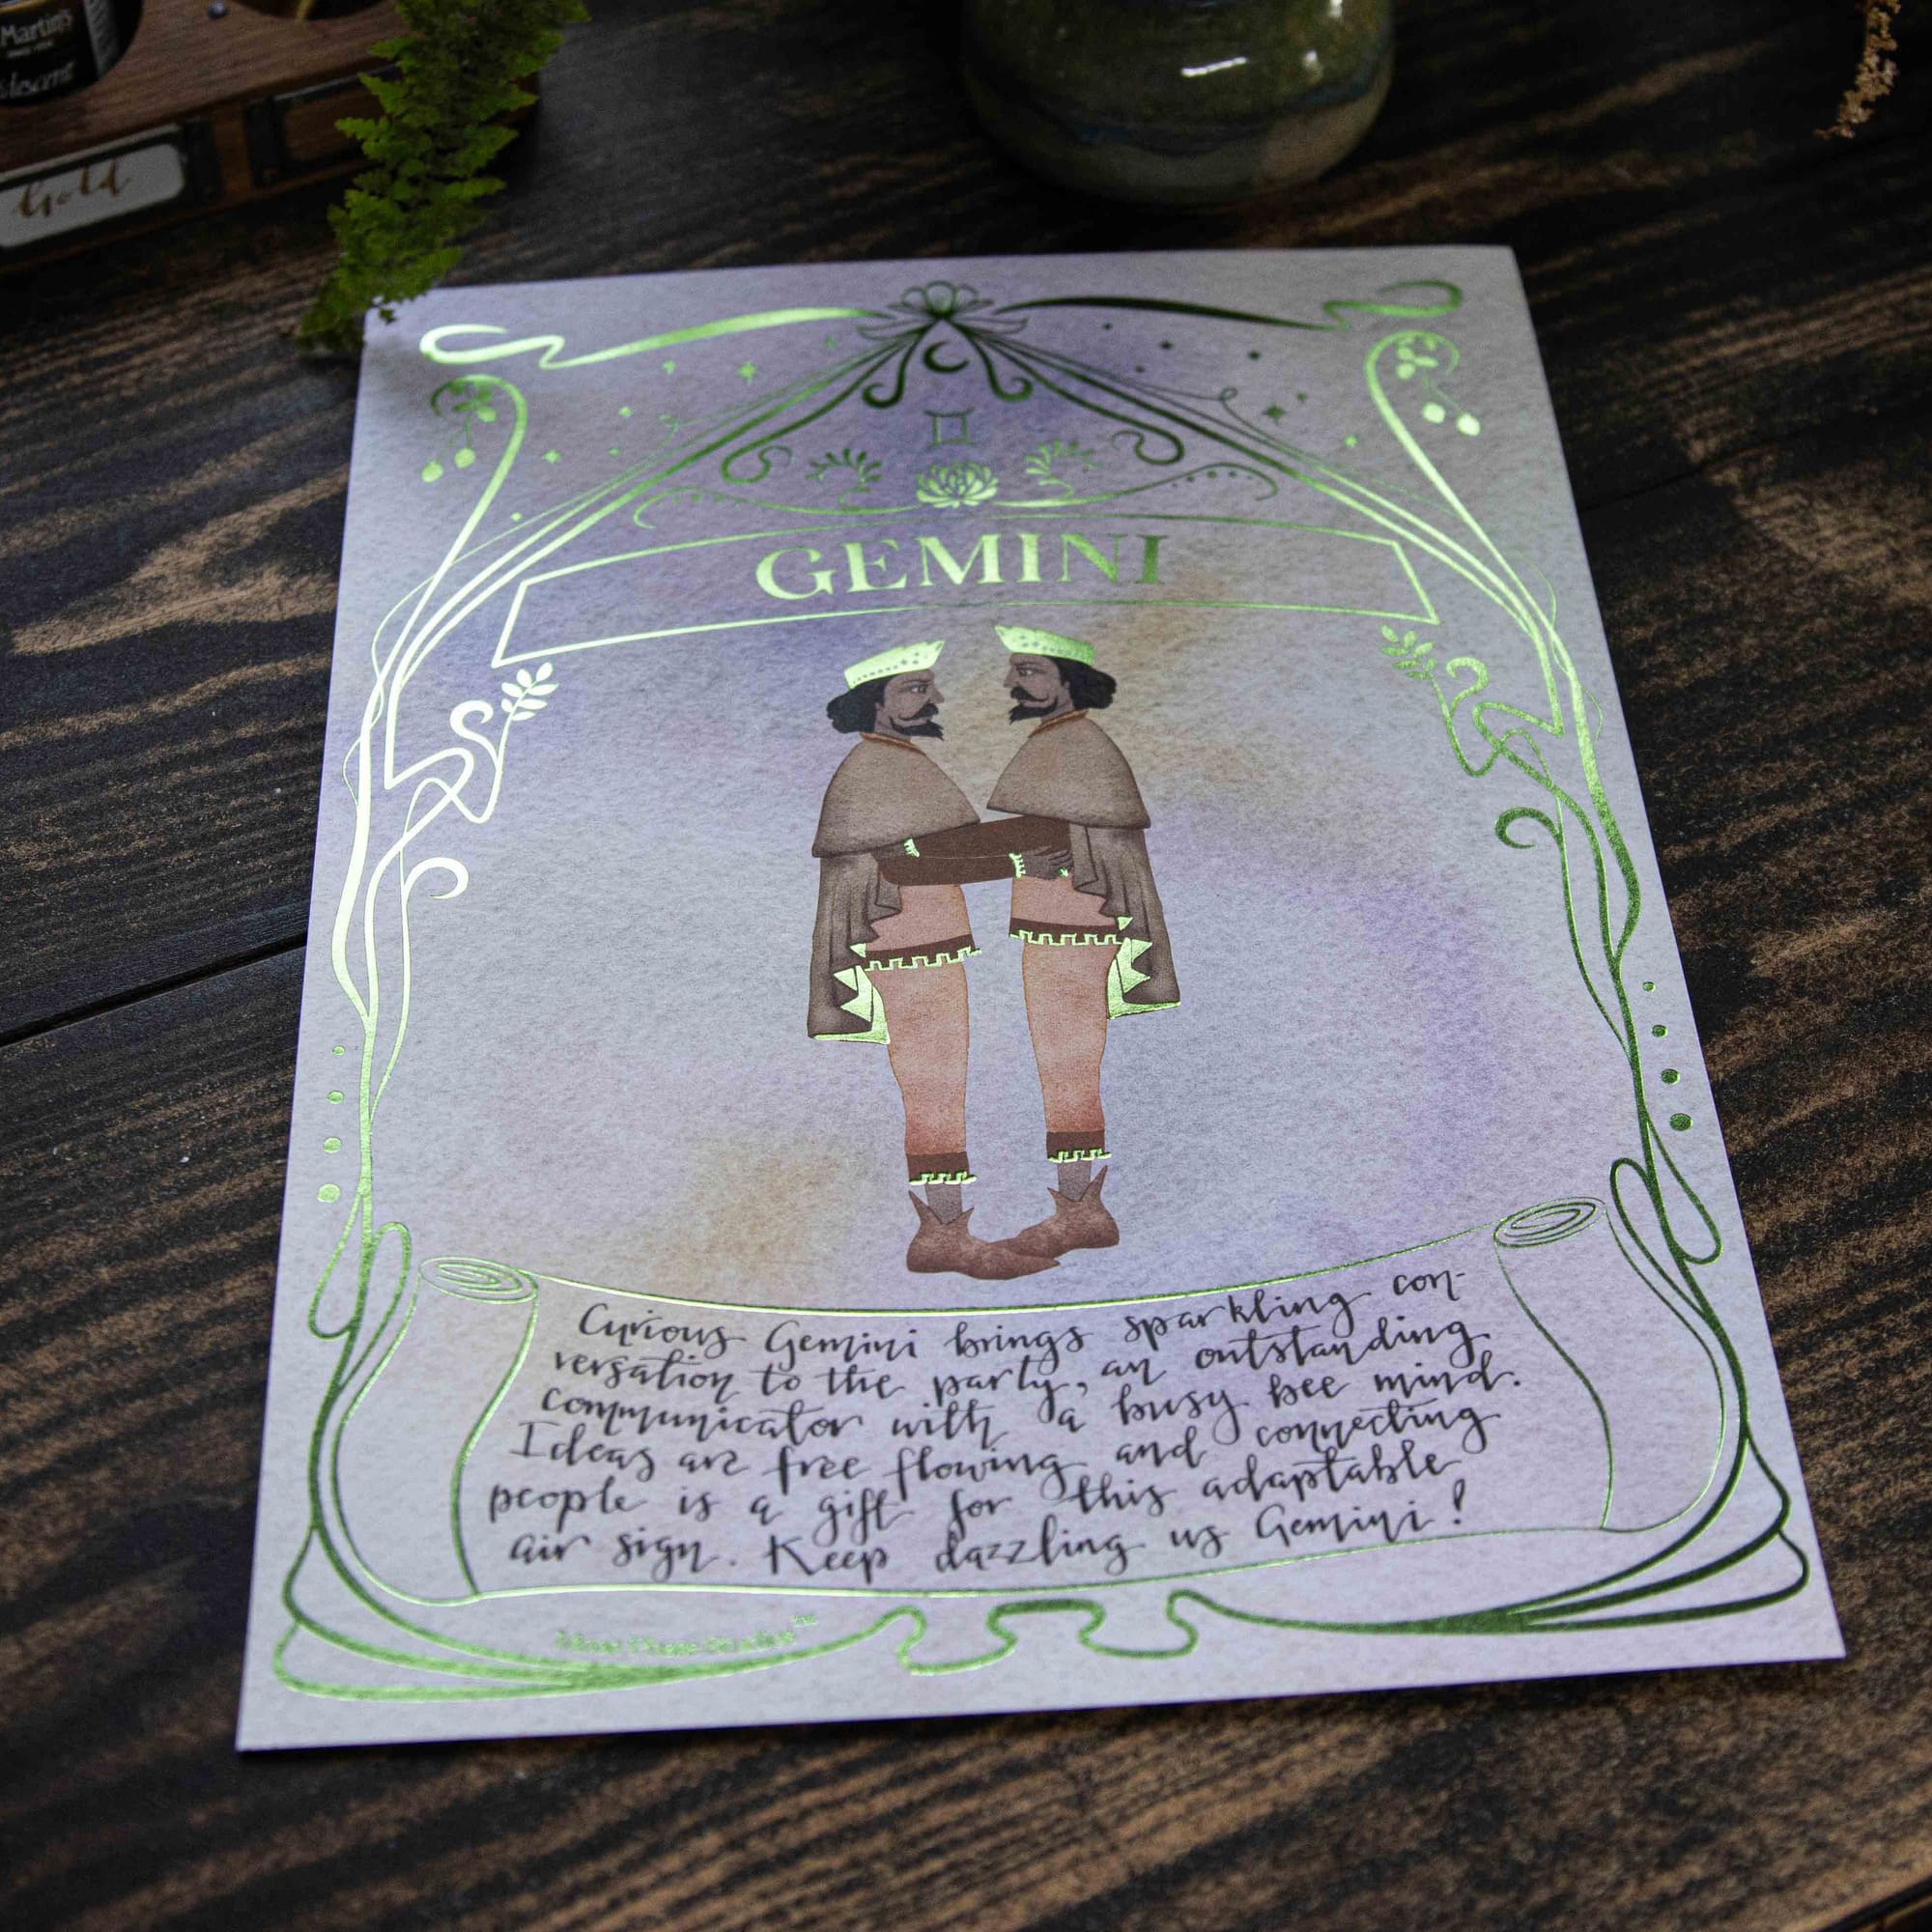 Martin's
Gold
GEMINI
Curious Gemini brings sparkling con-
versation to the party, an outstanding
communicator with a busy bee mind.
Ideas are free flowing and connecting
people is a gift for this adaptable
air sign. Keep dazzling us Gemini!